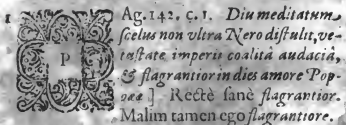 1 P Ag.142. c.1. Diu meditatum
scelus non vltra Nero distulit, ve-
tustate imperii coalitâ audaciâ,
& flagrantior in dies amore Pop-
pææ] Rectè sanè flagrantior.
Malim tamen ego flagrantiore.